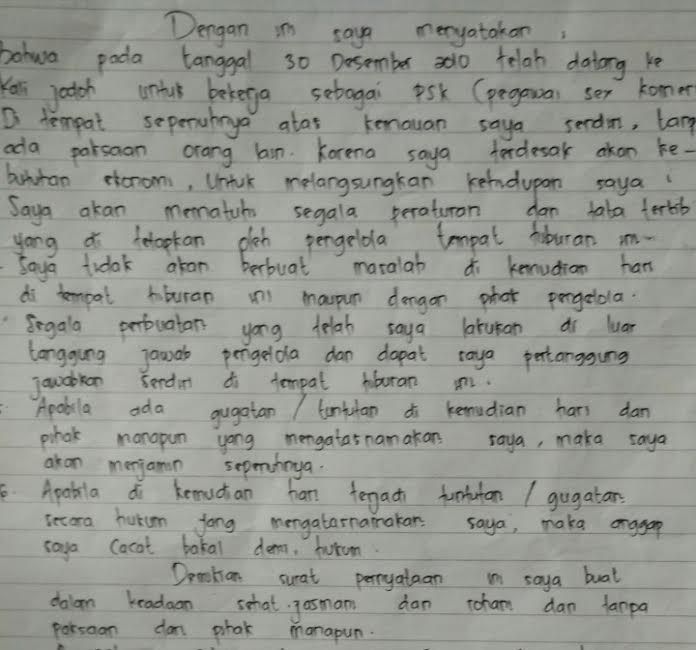 Dengan ini saya menyatakan,
bahwa pada tanggal 30 Desember 2010 telah datang ke
Kali jodoh untuk bekerja sebagai PSK (pegawai sex komer
Di tempat sepenuhnya atas kemauan saya sendiri, tanp
ada paksaan orang lain. Karena saya terdesak akan ke-
butuhan ekonomi, Untuk melangsungkan kehidupan saya :
Saya akan mematuhi segala peraturan dan tata tertib
yang di tetapkan oleh pengelola tempat hiburan ini-
- Saya tidak akan berbuat masalah di kemudian hari
di tempat hiburan ini maupun dengan pihak pengelola.
Segala perbuatan yang telah saya lakukan di luar
tanggung jawab pengelola dan dapat saya pertanggung
jawabkan sendiri di tempat hiburan ini.
Apabila ada gugatan / tuntutan di kemudian hari dan
pihak manapun yang mengatasnamakan saya, maka saya
akan menjamin sepenuhnya.
6. Apabila di kemudian hari terjadi tuntutan / gugatan
secara hukum yang mengatasnamakan saya, maka anggap
saya cacat bakal demi, hukum.
Demikian surat pernyataan ini saya buat
dalam keadaan sehat jasmani dan rohani dan tanpa
paksaan dari pihak manapun.